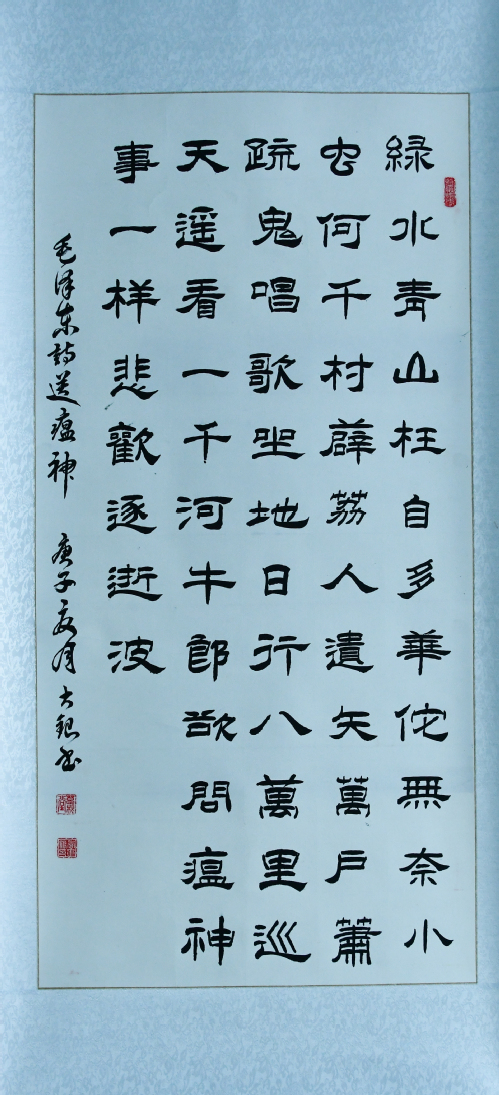 緑水青山枉自多華佗無奈小
虫何千村薜荔人遺矢萬戶蕭
疏鬼唱歌坐地日行八萬里巡
天遥看一千河牛郎欲問瘟神
事一样悲歡逐逝波
毛泽东詩送瘟神 庚子夏月 大銀书